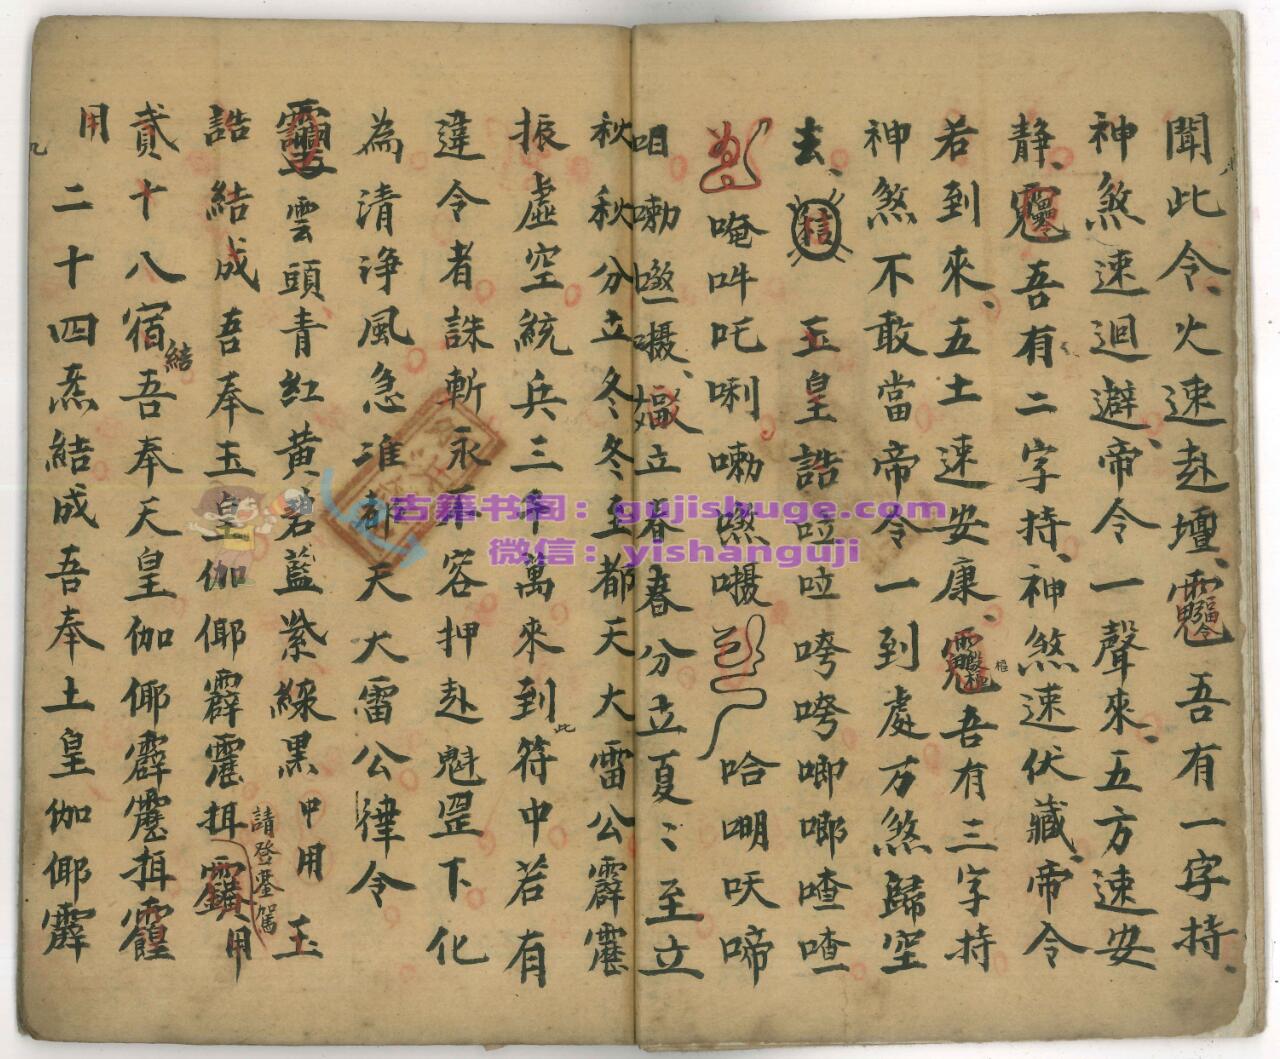 聞此令、火速赴壇、吾有一字持、
神煞速迴避、帝令一聲來、五方速安
静、吾有二字持、神煞速伏藏、帝令
若到來、五土速安康、吾有三字持
神煞不敢當帝令一到處万煞歸空
去、 玉皇誥啦啦咵咵唧唧喳喳
唵吽吒唎嘞囉哈吠啼
呾嘞囁立春春分立夏〻至立
秋秋分立冬冬至都天大雷公霹靂
振虛空統兵三千萬來到此符中若有
違令者誅斬永不容押赴魁罡下化
為清淨風急准都天大雷公律令
雲頭青紅黄碧藍紫綠黑中用玉
請登臺駕
誥結成吾奉玉皇伽倻霹靂揖用
貳十八宿結吾奉天皇伽倻霹靂揖
用二十四炁結成吾奉土皇伽倻霹
古籍书阁：gujishuge.com
微信：yishanguji